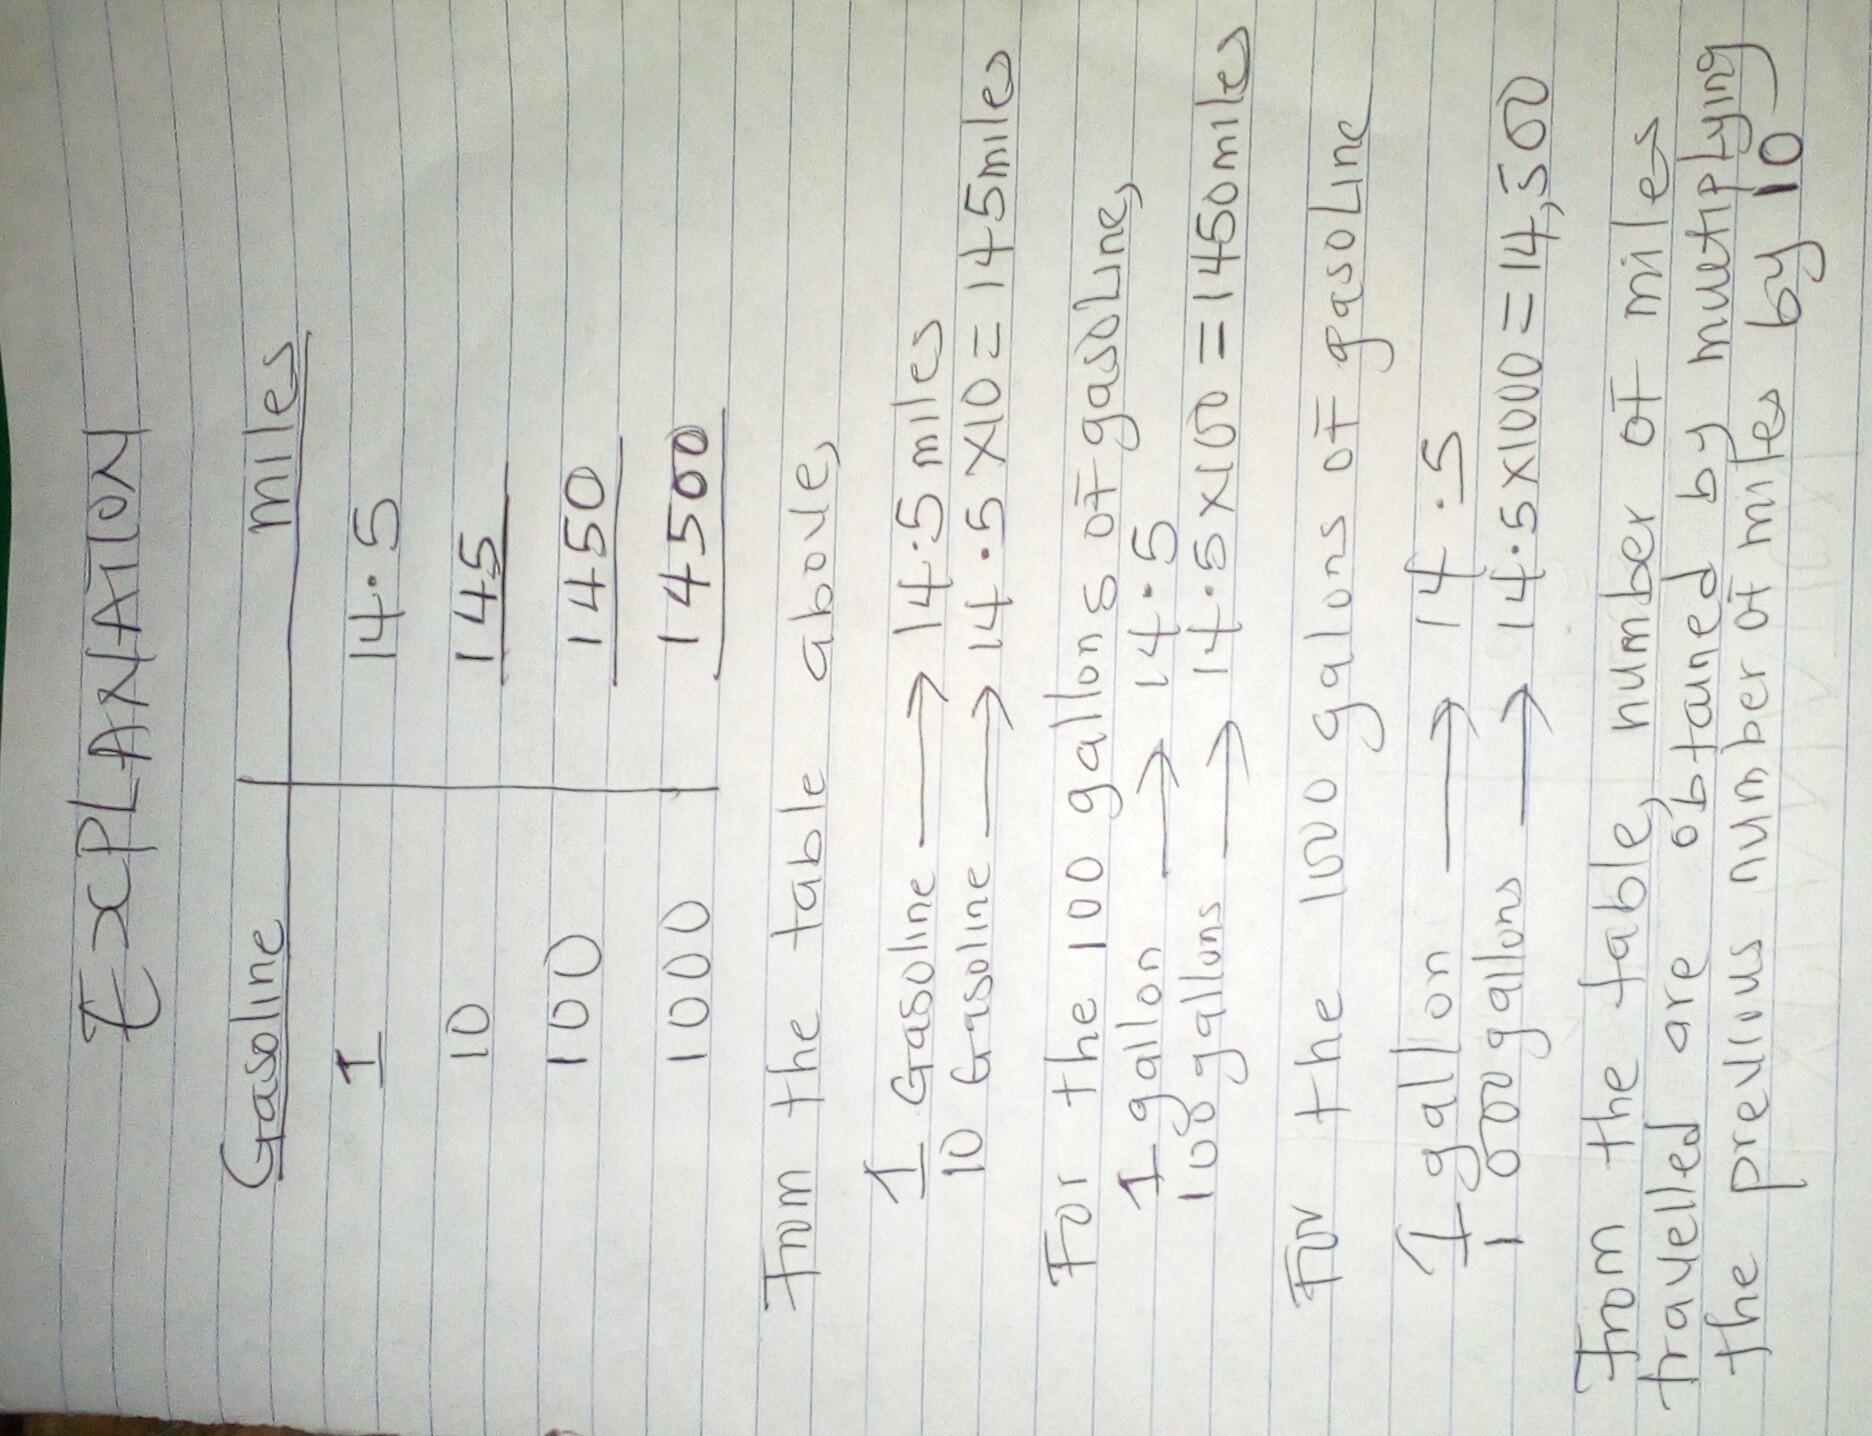 EXPLANATION
Gasoline miles
1 14.5
10 145
100 1450
1000 14500
From the table above,
1 Gasoline → 14.5 miles
10 Gasoline → 14.5 x10 = 145miles
For the 100 gallons of gasoline,
1 gallon → 14.5
100 gallons → 14.5x100 = 1450miles
For the 1000 galons of gasoline
1 gallon → 14.5
1000gallons → 14.5x1000 = 14,500
From the table, number of miles
travelled are obtained by multiplying
the previous number of miles by 10